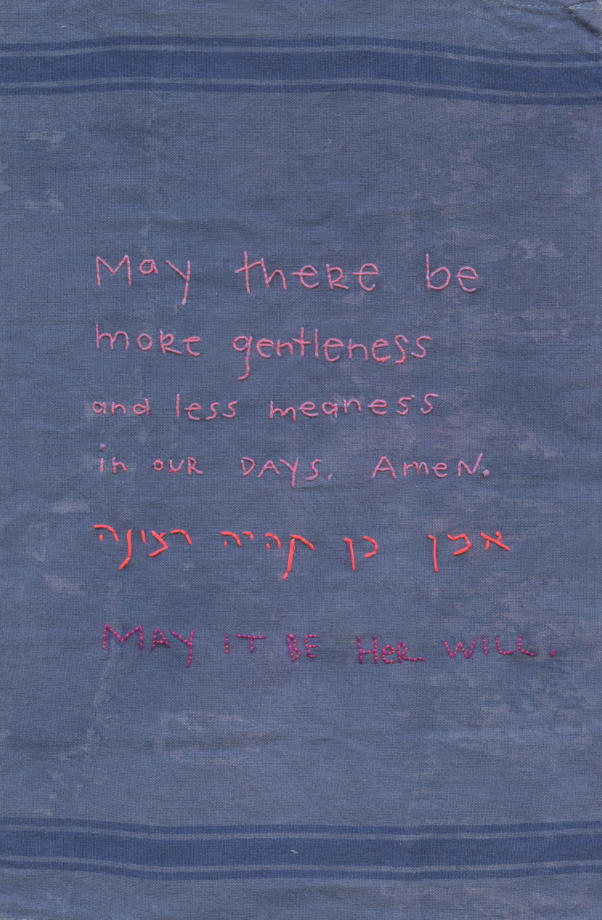 May there be
more gentleness
and less meaness
in our DAYS. Amen.
אמן כן תהיה רצונה
MAY IT BE Her WILL.